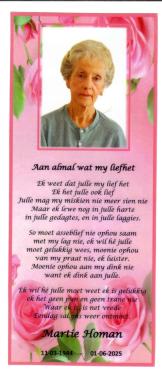 Aan almal wat my liefhet
Ek weet dat julle my lief het
Ek het julle ook lief
Julle mag my miskien nie meer sien nie
Maar ek lewe nog in julle harte
in julle gedagtes, en in julle laggies.
So moet asseblief nie ophou saam
met my lag nie, ek wil hê julle
moet gelukkig wees, moenie ophou
van my praat nie, ek luister.
Moenie ophou aan my dink nie
want ek dink aan julle.
Ek wil hê julle moet weet ek is gelukkig
ek het geen pyn en geen trane nie
Waar ek is, is net vrede
Eendag sal ons weer ontmoet.
Martie Homan
11-03-1944 - 01-06-2025